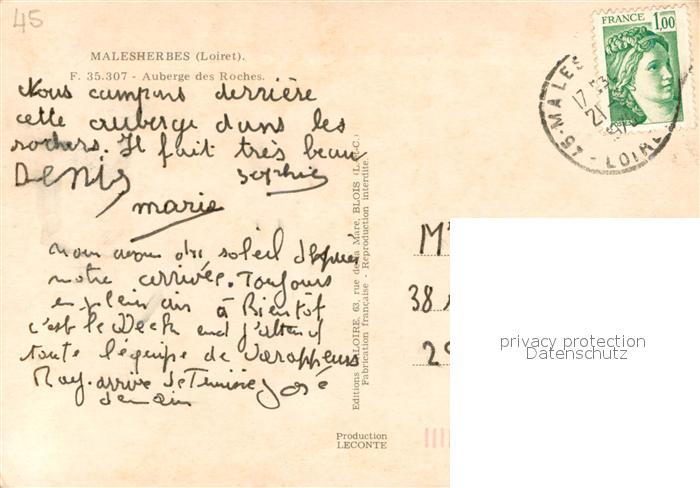 45
MALESHERBES (Loiret).
F. 35.307 - Auberge des Roches.
Nous campons derrière
cette auberge dans les
rochers. Il fait très beau
Denis Sophie
marie
nous avons du soleil depuis
notre arrivée. Toujours
en plein air à Bientôt
c'est le Week end j'attend
toute l'équipe de Varappeurs
Ray. arrive de Tunisie José
demain
Editions VALOIRE, 63, rue de la Mare, BLOIS (L.-et-C.)
Fabrication française - Reproduction interdite.
Production
LECONTE
FRANCE
1,00
45-MALES
17 H
21
LOIRE
M
38
29
privacy protection
Datenschutz